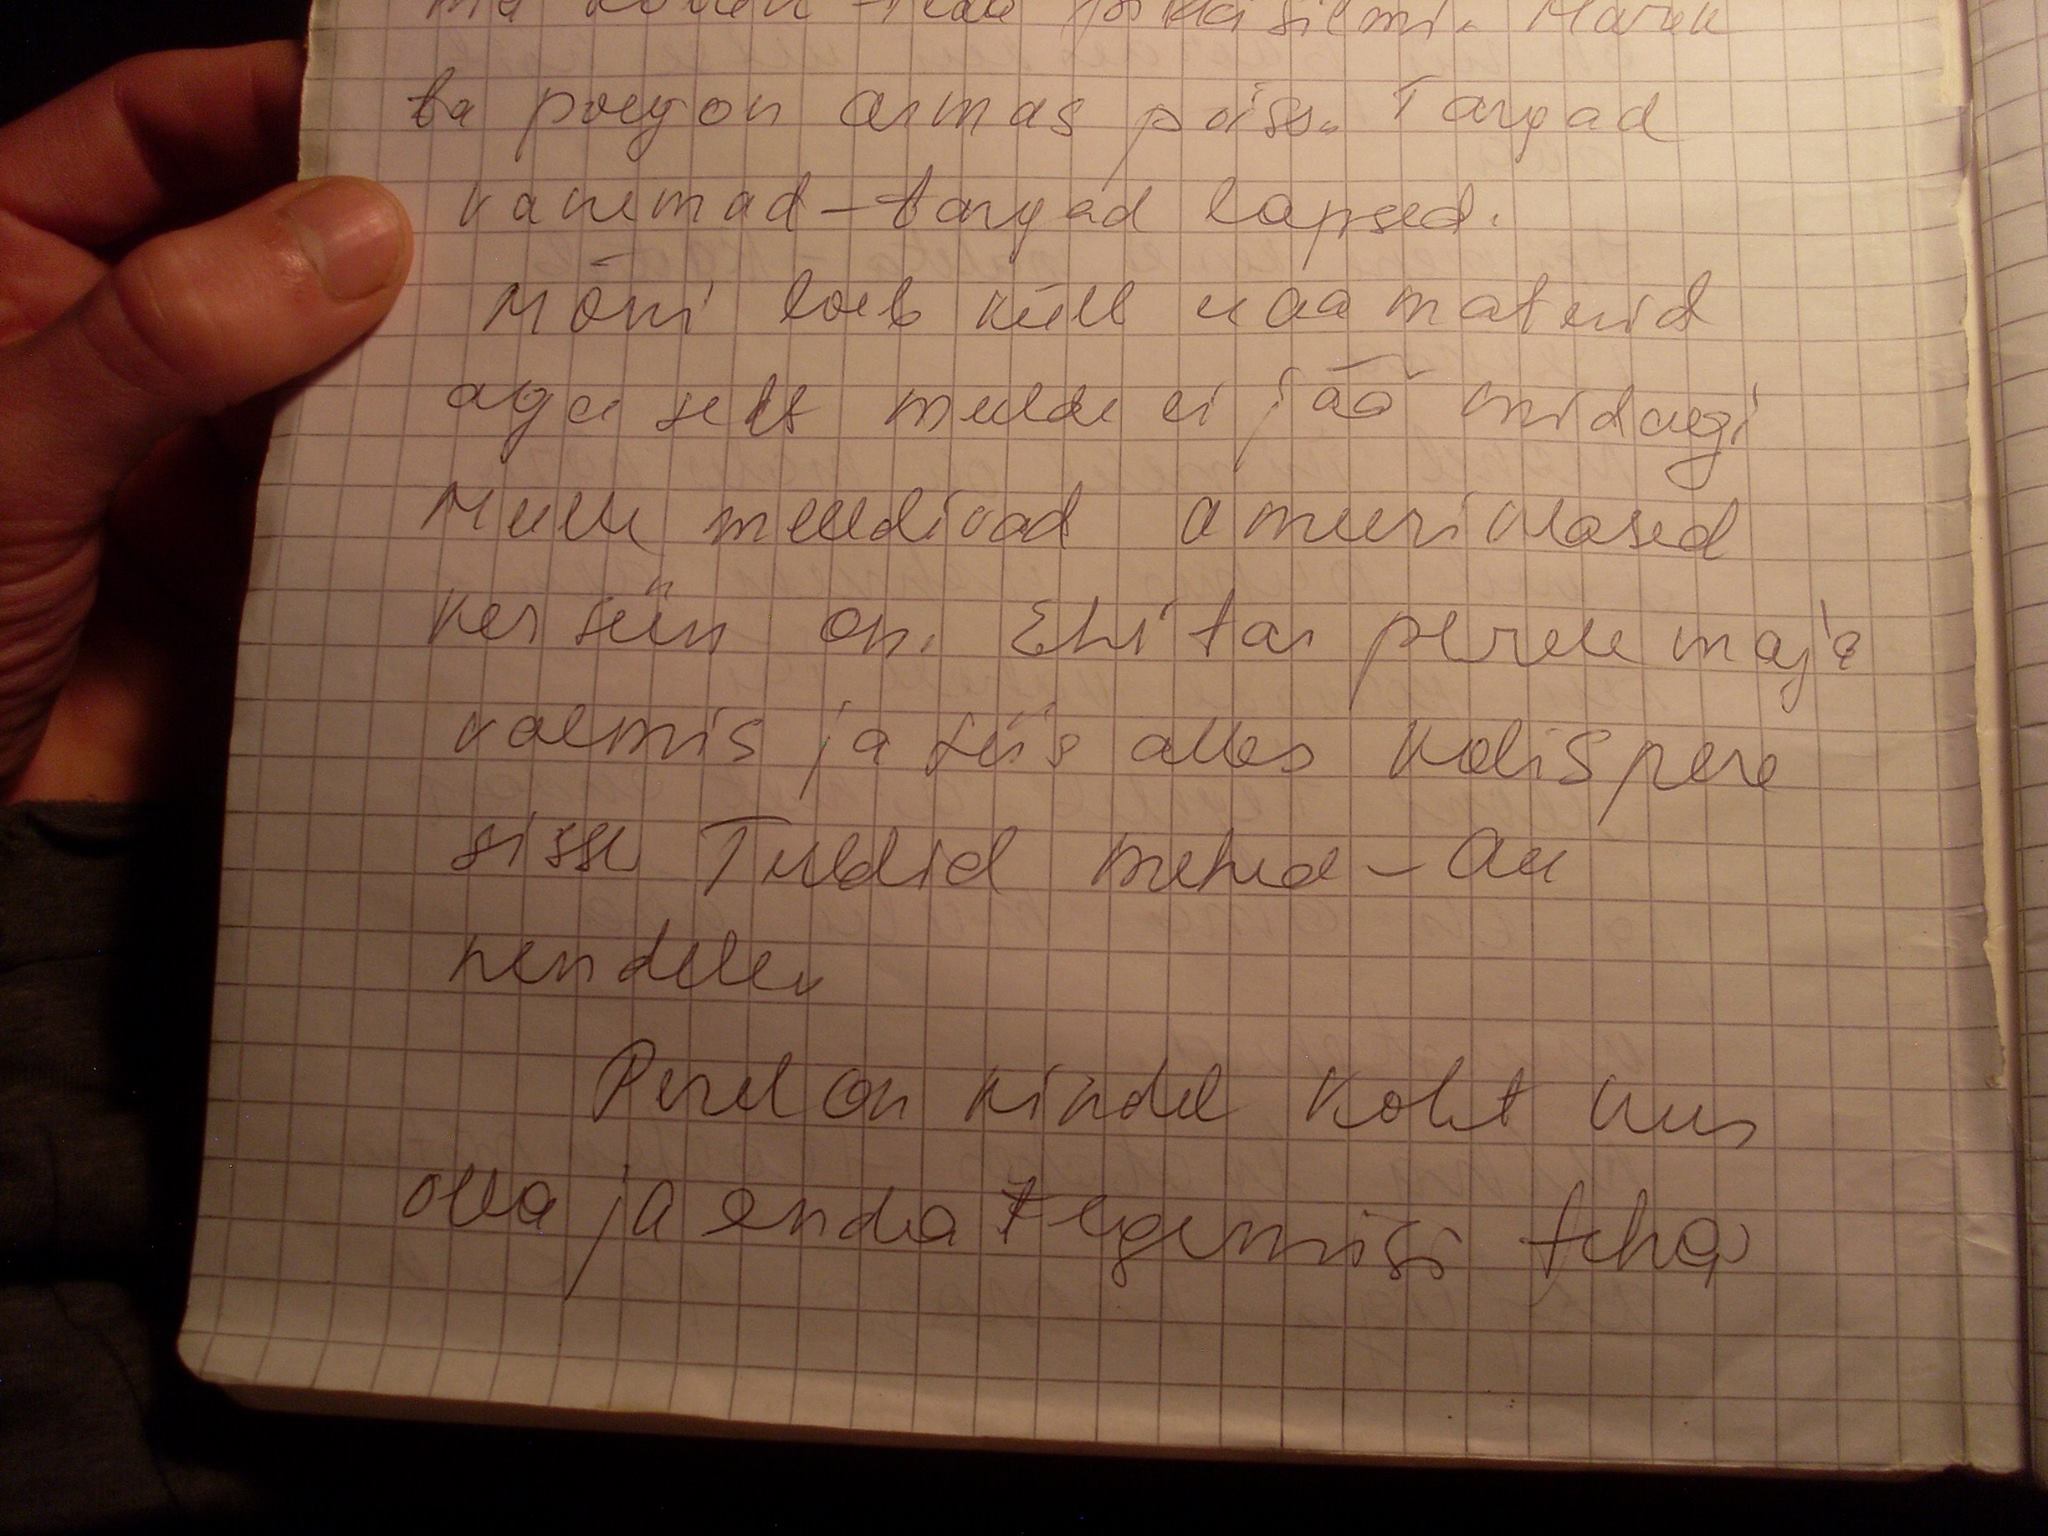 ma silmi. Marek
ta poeg on armas poiss. Targad
vanemad - targad lapsed.
Mõni loeb küll raamatuid
aga selt meelde ei jää midagi
Mulle meeldivad ameeriklased
kes siin on. Ehitas perele maja
valmis ja siis alles kolis pere
sisse Tublid mehed - Au
nendele.
Perel on kindel koht kus
olla ja enda tegemisi teha